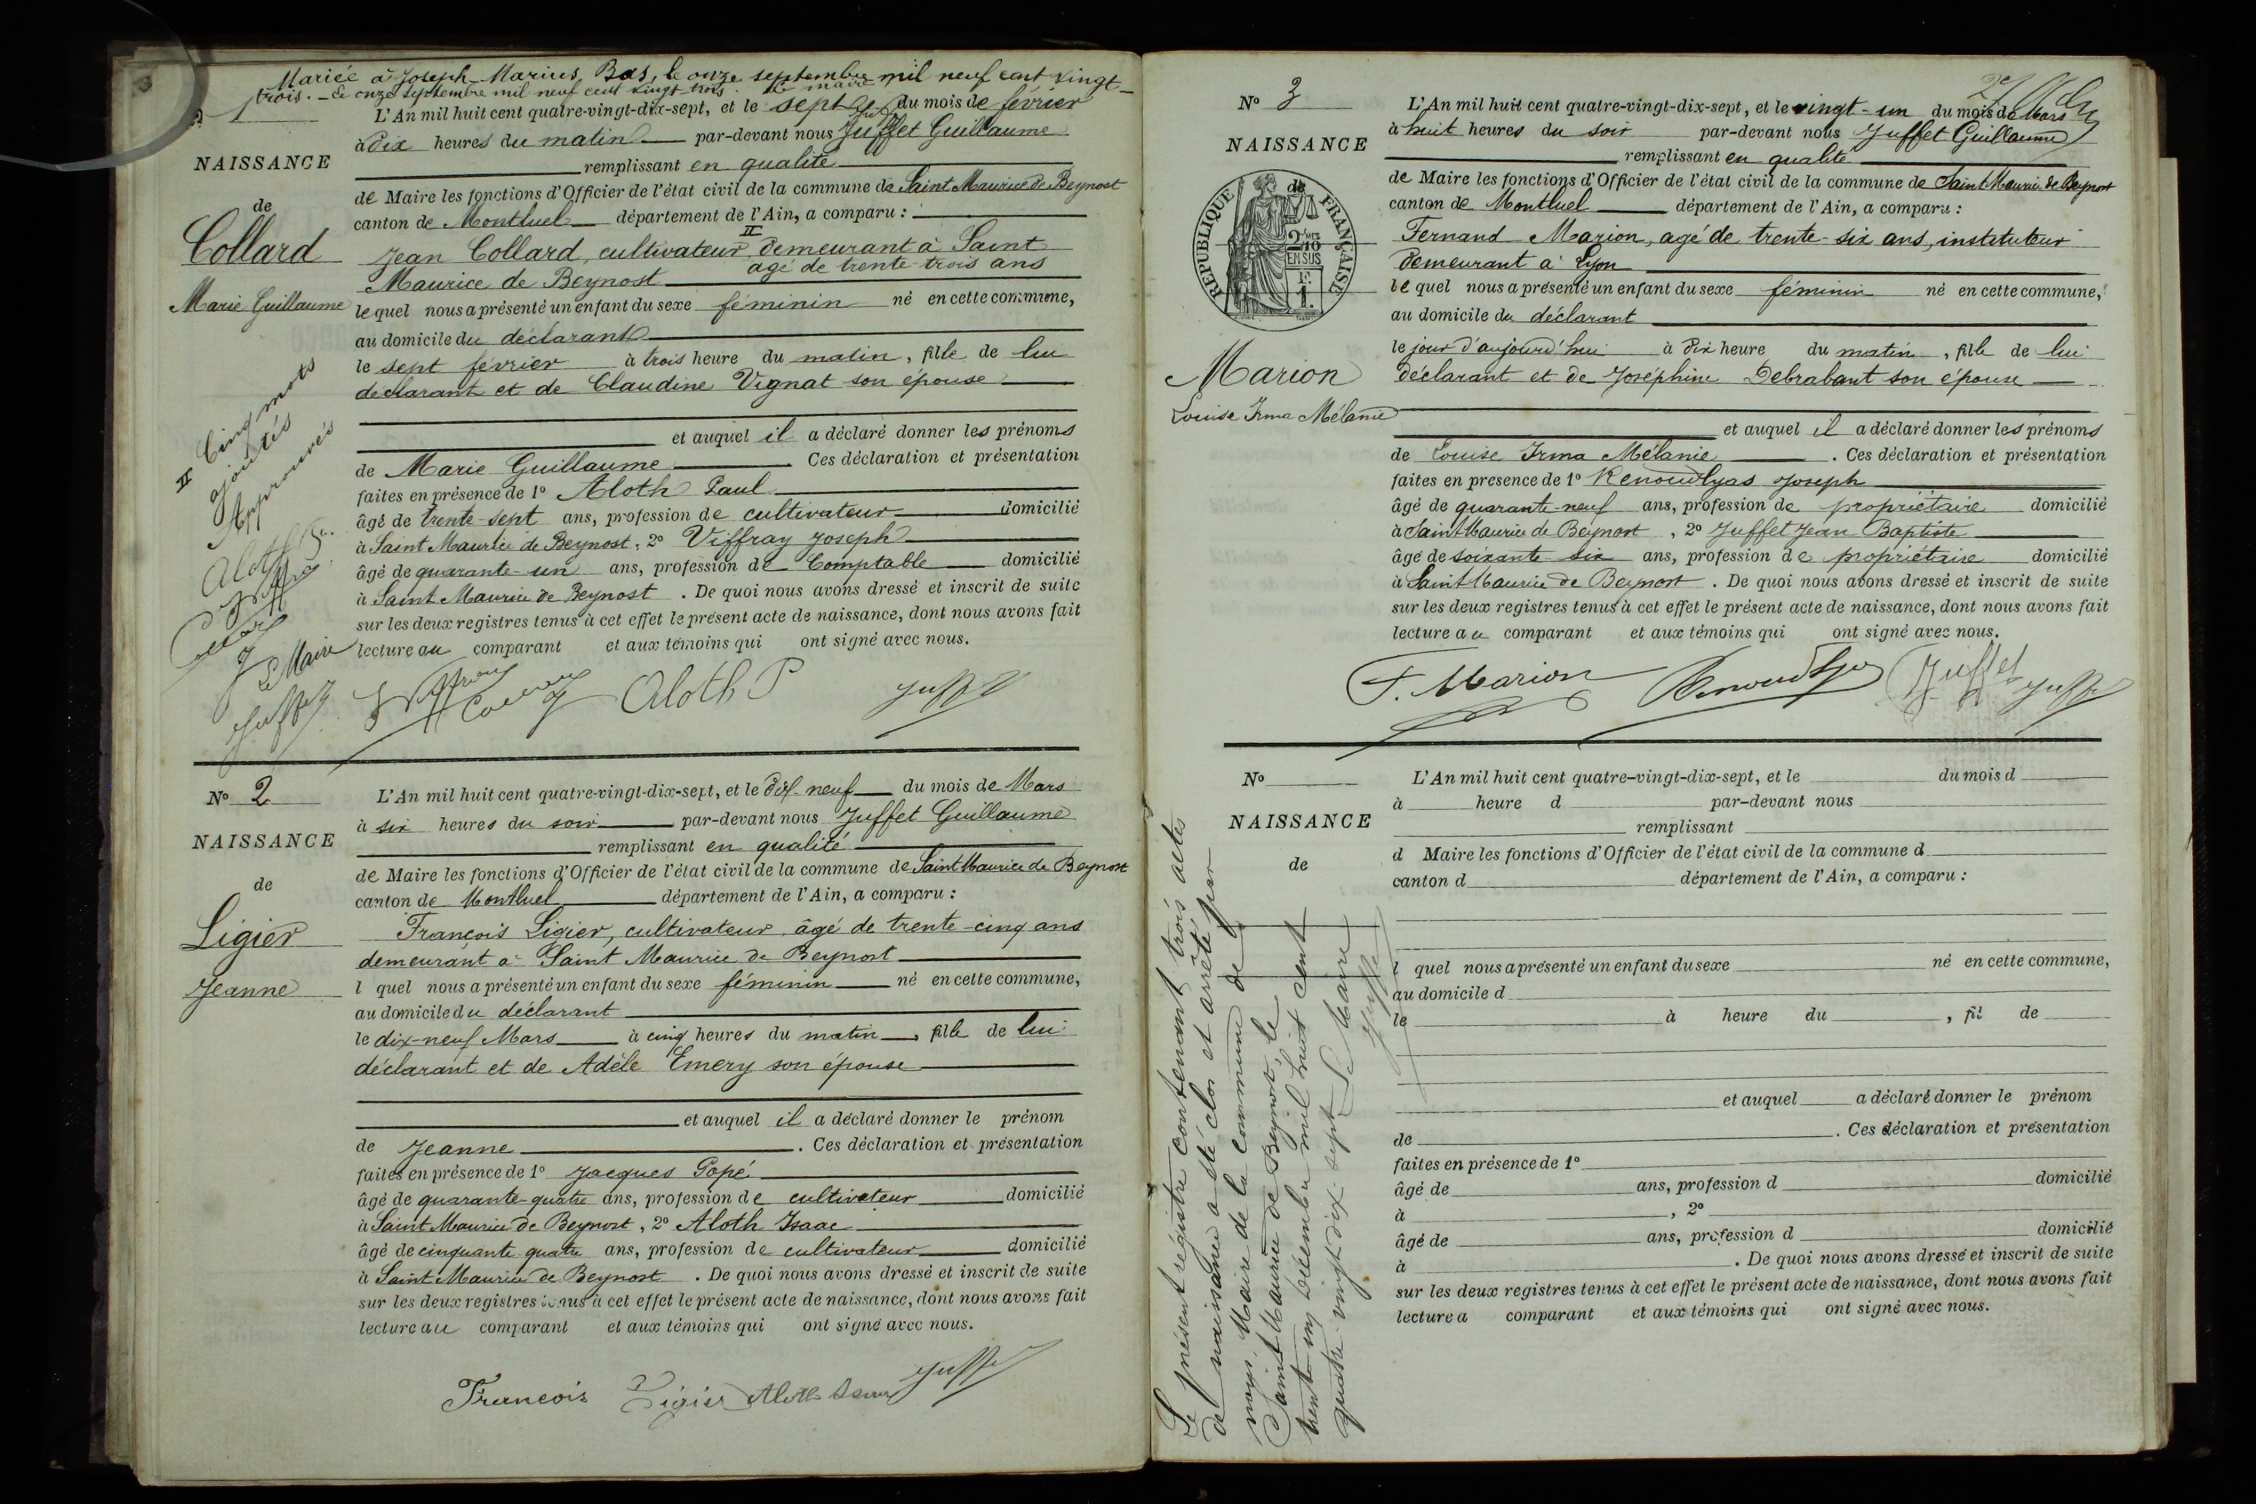 Mariée à Joseph Marius Bas, le onze septembre mil neuf cent vingt-
trois. - Le onze septembre mil neuf cent vingt trois. Le maire
1
L'An mil huit cent quatre-vingt-dix-sept, et le sept du mois de février
à dix heures du matin par-devant nous Juffet Guillaume
NAISSANCE
remplissant en qualité
de Maire les fonctions d'Officier de l'état civil de la commune de Saint Maurice de Beynost
de
canton de Montluel département de l'Ain, a comparu :
Collard
Jean Collard, cultivateur II demeurant à Saint
âgé de trente-trois ans
Maurice de Beynost
Marie Guillaume
le quel nous a présenté un enfant du sexe féminin né en cette commune,
au domicile du déclarant
le sept février à trois heure du matin, fille de lui
déclarant et de Claudine Vignat son épouse
et auquel il a déclaré donner les prénoms
de Marie Guillaume Ces déclaration et présentation
faites en présence de 1º Aloth Paul
âgé de trente-sept ans, profession de cultivateur domicilié
à Saint Maurice de Beynost, 2º Viffray Joseph
âgé de quarante-un ans, profession de Comptable domicilié
à Saint Maurice de Beynost. De quoi nous avons dressé et inscrit de suite
sur les deux registres tenus à cet effet le présent acte de naissance, dont nous avons fait
lecture au comparant et aux témoins qui ont signé avec nous.
II Cinq mots
ajoutés
Approuvés
Aloth P.
Le Maire
Juffet
Aloth P Juffet
Nº 2
L'An mil huit cent quatre-vingt-dix-sept, et le dix-neuf du mois de Mars
à six heures du soir par-devant nous Juffet Guillaume
NAISSANCE
remplissant en qualité
de Maire les fonctions d'Officier de l'état civil de la commune de Saint Maurice de Beynost
de
canton de Montluel département de l'Ain, a comparu :
Ligier
François Ligier, cultivateur, âgé de trente-cinq ans
demeurant à Saint Maurice de Beynost
Jeanne
l quel nous a présenté un enfant du sexe féminin né en cette commune,
au domicile du déclarant
le dix-neuf Mars à cinq heures du matin, fille de lui
déclarant et de Adèle Emery son épouse
et auquel il a déclaré donner le prénom
de Jeanne. Ces déclaration et présentation
faites en présence de 1º Jacques Popé
âgé de quarante-quatre ans, profession de cultivateur domicilié
à Saint Maurice de Beynost, 2º Aloth Isaac
âgé de cinquante quatre ans, profession de cultivateur domicilié
à Saint Maurice de Beynost. De quoi nous avons dressé et inscrit de suite
sur les deux registres tenus à cet effet le présent acte de naissance, dont nous avons fait
lecture au comparant et aux témoins qui ont signé avec nous.
Francois Ligier Aloth Isaac Juffet
Nº 3
L'An mil huit cent quatre-vingt-dix-sept, et le vingt-un du mois de Mars
à huit heures du soir par-devant nous Juffet Guillaume
NAISSANCE
remplissant en qualité
de Maire les fonctions d'Officier de l'état civil de la commune de Saint Maurice de Beynost
de
canton de Montluel département de l'Ain, a comparu :
RÉPUBLIQUE FRANÇAISE
2/10
EN SUS
1 F.
Fernand Marion, agé de trente-six ans, instituteur
demeurant à Lyon
le quel nous a présenté un enfant du sexe féminin né en cette commune,
au domicile du déclarant
le jour d'aujourd'hui à dix heure du matin, fille de lui
Marion
déclarant et de Joséphine Debrabant son épouse
Louise Irma Mélanie
et auquel il a déclaré donner les prénoms
de Louise Irma Mélanie. Ces déclaration et présentation
faites en présence de 1º Renoud Lyas Joseph
âgé de quarante-neuf ans, profession de propriétaire domicilié
à Saint Maurice de Beynost, 2º Juffet Jean Baptiste
âgé de soixante-six ans, profession de propriétaire domicilié
à Saint Maurice de Beynost. De quoi nous avons dressé et inscrit de suite
sur les deux registres tenus à cet effet le présent acte de naissance, dont nous avons fait
lecture au comparant et aux témoins qui ont signé avec nous.
F. Marion Juffet Juffet
Nº
L'An mil huit cent quatre-vingt-dix-sept, et le du mois d
à heure d par-devant nous
NAISSANCE
remplissant
d Maire les fonctions d'Officier de l'état civil de la commune d
de
canton d département de l'Ain, a comparu :
l quel nous a présenté un enfant du sexe né en cette commune,
au domicile d
le à heure du , fil de
et auquel a déclaré donner le prénom
de . Ces déclaration et présentation
faites en présence de 1º
âgé de ans, profession d domicilié
à , 2º
âgé de ans, profession d domicilié
à . De quoi nous avons dressé et inscrit de suite
sur les deux registres tenus à cet effet le présent acte de naissance, dont nous avons fait
lecture a comparant et aux témoins qui ont signé avec nous.
Le présent régistre contenant trois actes
de naissance a été clos et arrêté par
nous, Maire de la commune de
Saint Maurice de Beynost, le
trente un décembre mil huit cent
quatre-vingt dix-sept Le Maire
Juffet